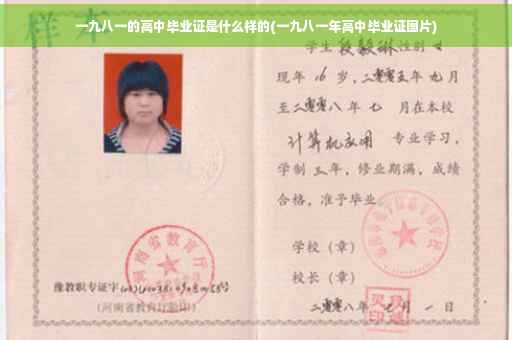 一九八一的高中毕业证是什么样的(一九八一年高中毕业证图片)
样本
学生段毅琳性别女
现年16岁,二零零五年九月
至二零零八年七月在本校
计算机应用 专业学习,
学制三年,修业期满,成绩
合格,准予毕业
学校(章)
河南省教育厅
校长(章)
豫教职专证字
(河南省教育厅验印)
二零零八年七月一日